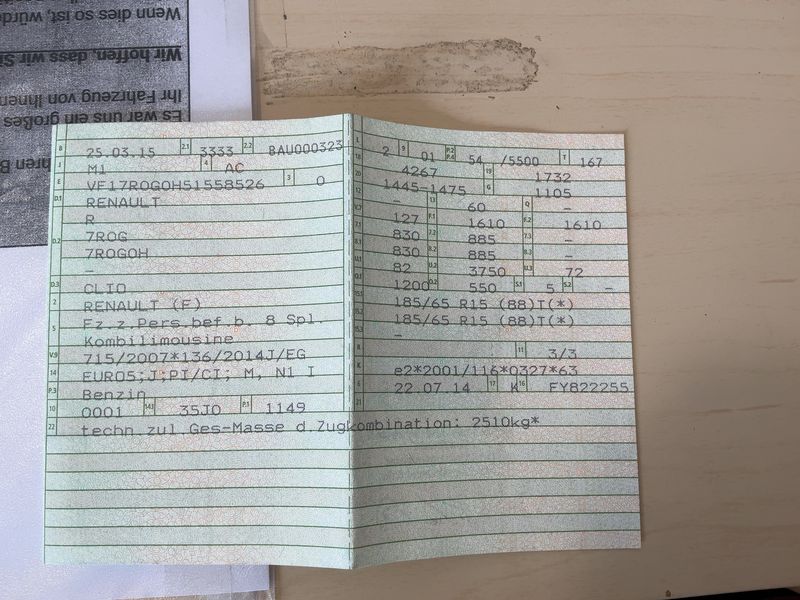 Wenn dies so ist, würde
Wir hoffen, dass wir Si
Ihr Fahrzeug von Ihnen
Es war uns ein großes
hren B
B 25.03.15 2.1 3333 2.2 BAU000323
J M1 4 AC
E VF17R0G0H51558526 3 0
D.1 RENAULT
R
D.2 7R0G
7R0G0H
–
D.3 CLIO
2 RENAULT (F)
5 Fz.z.Pers.bef.b. 8 Spl.
Kombilimousine
V.9 715/2007*136/2014J/EG
14 EURO5;J;PI/CI; M, N1 I
P.3 Benzin
10 0001 14.1 35J0 P.1 1149
22 techn.zul.Ges-Masse d.Zugkombination: 2510kg*
L 2 9 01 P.2 P.4 54 /5500 T 167
18 4267 19 1732
20 1445-1475 G 1105
12 – 13 60 Q –
V.7 127 F.1 1610 F.2 1610
7.1 830 7.2 885 7.3 –
8.1 830 8.2 885 8.3 –
U.1 82 U.2 3750 U.3 72
O.1 1200 O.2 550 S.1 5 S.2 –
15.1 185/65 R15 (88)T(*)
15.2 185/65 R15 (88)T(*)
15.3 –
R 11 3/3
K e2*2001/116*0327*63
6 22.07.14 17 K 16 FY822255
21